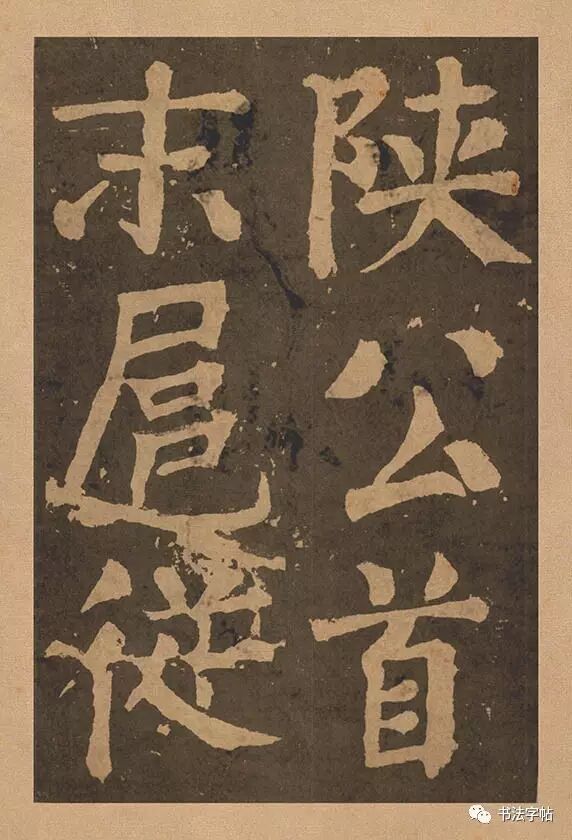 陕公首
末扈從
书法字帖